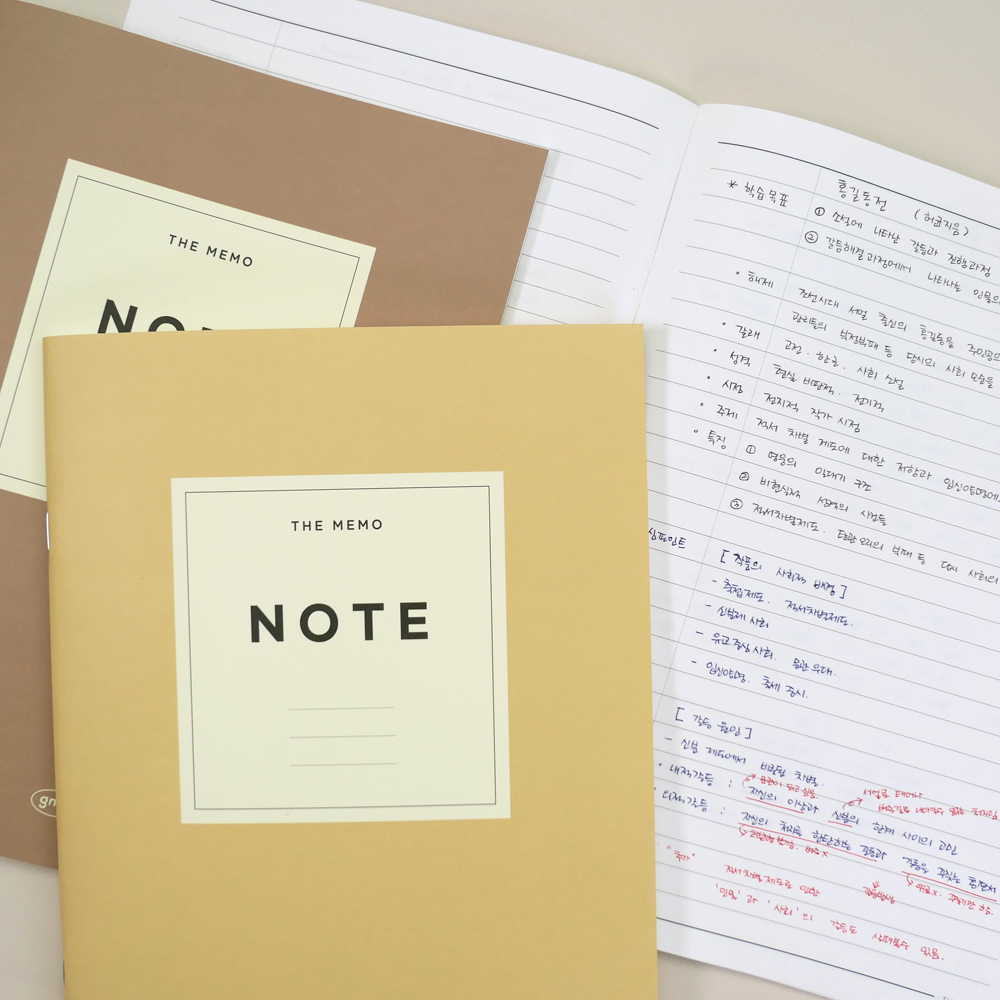 THE MEMO
THE MEMO
NOTE
gn
홍길동전 (허균지음)
* 학습목표 ① 소설에 나타난 갈등과 진행과정
② 갈등해결과정에서 나타나는 인물의
• 해제 조선시대 서얼 출신의 홍길동을 주인공으
관리들의 부정부패 등 당시의 사회 모습을
• 갈래 고전. 한글. 사회 소설
• 성격 현실 비판적. 전기적
• 시점 전지적 작가 시점
• 주제 적서 차별 제도에 대한 저항과 입신양명에
• 특징 ① 영웅의 일대기 구조
② 비현실적 성격의 사건들
③ 적서차별제도. 탐관오리의 부패 등 당시 사회의
심포인트 [작품의 사회적 배경]
- 축첩제도. 적서차별제도.
- 신분제 사회
- 유교중심사회.
- 입신양명. 출세 중시.
[갈등 원인]
- 신분 제도에서 비롯된 차별.
• 내적갈등 : 자신의 이상과 신분의 한계 사이의 고민
• 외적갈등 : 자신의 처지를 한탄하는 길동과 길동을 꾸짖는 홍판서
적서차별제도로 인한
'인물'과 '사회'의 갈등도 살펴볼수 있음.